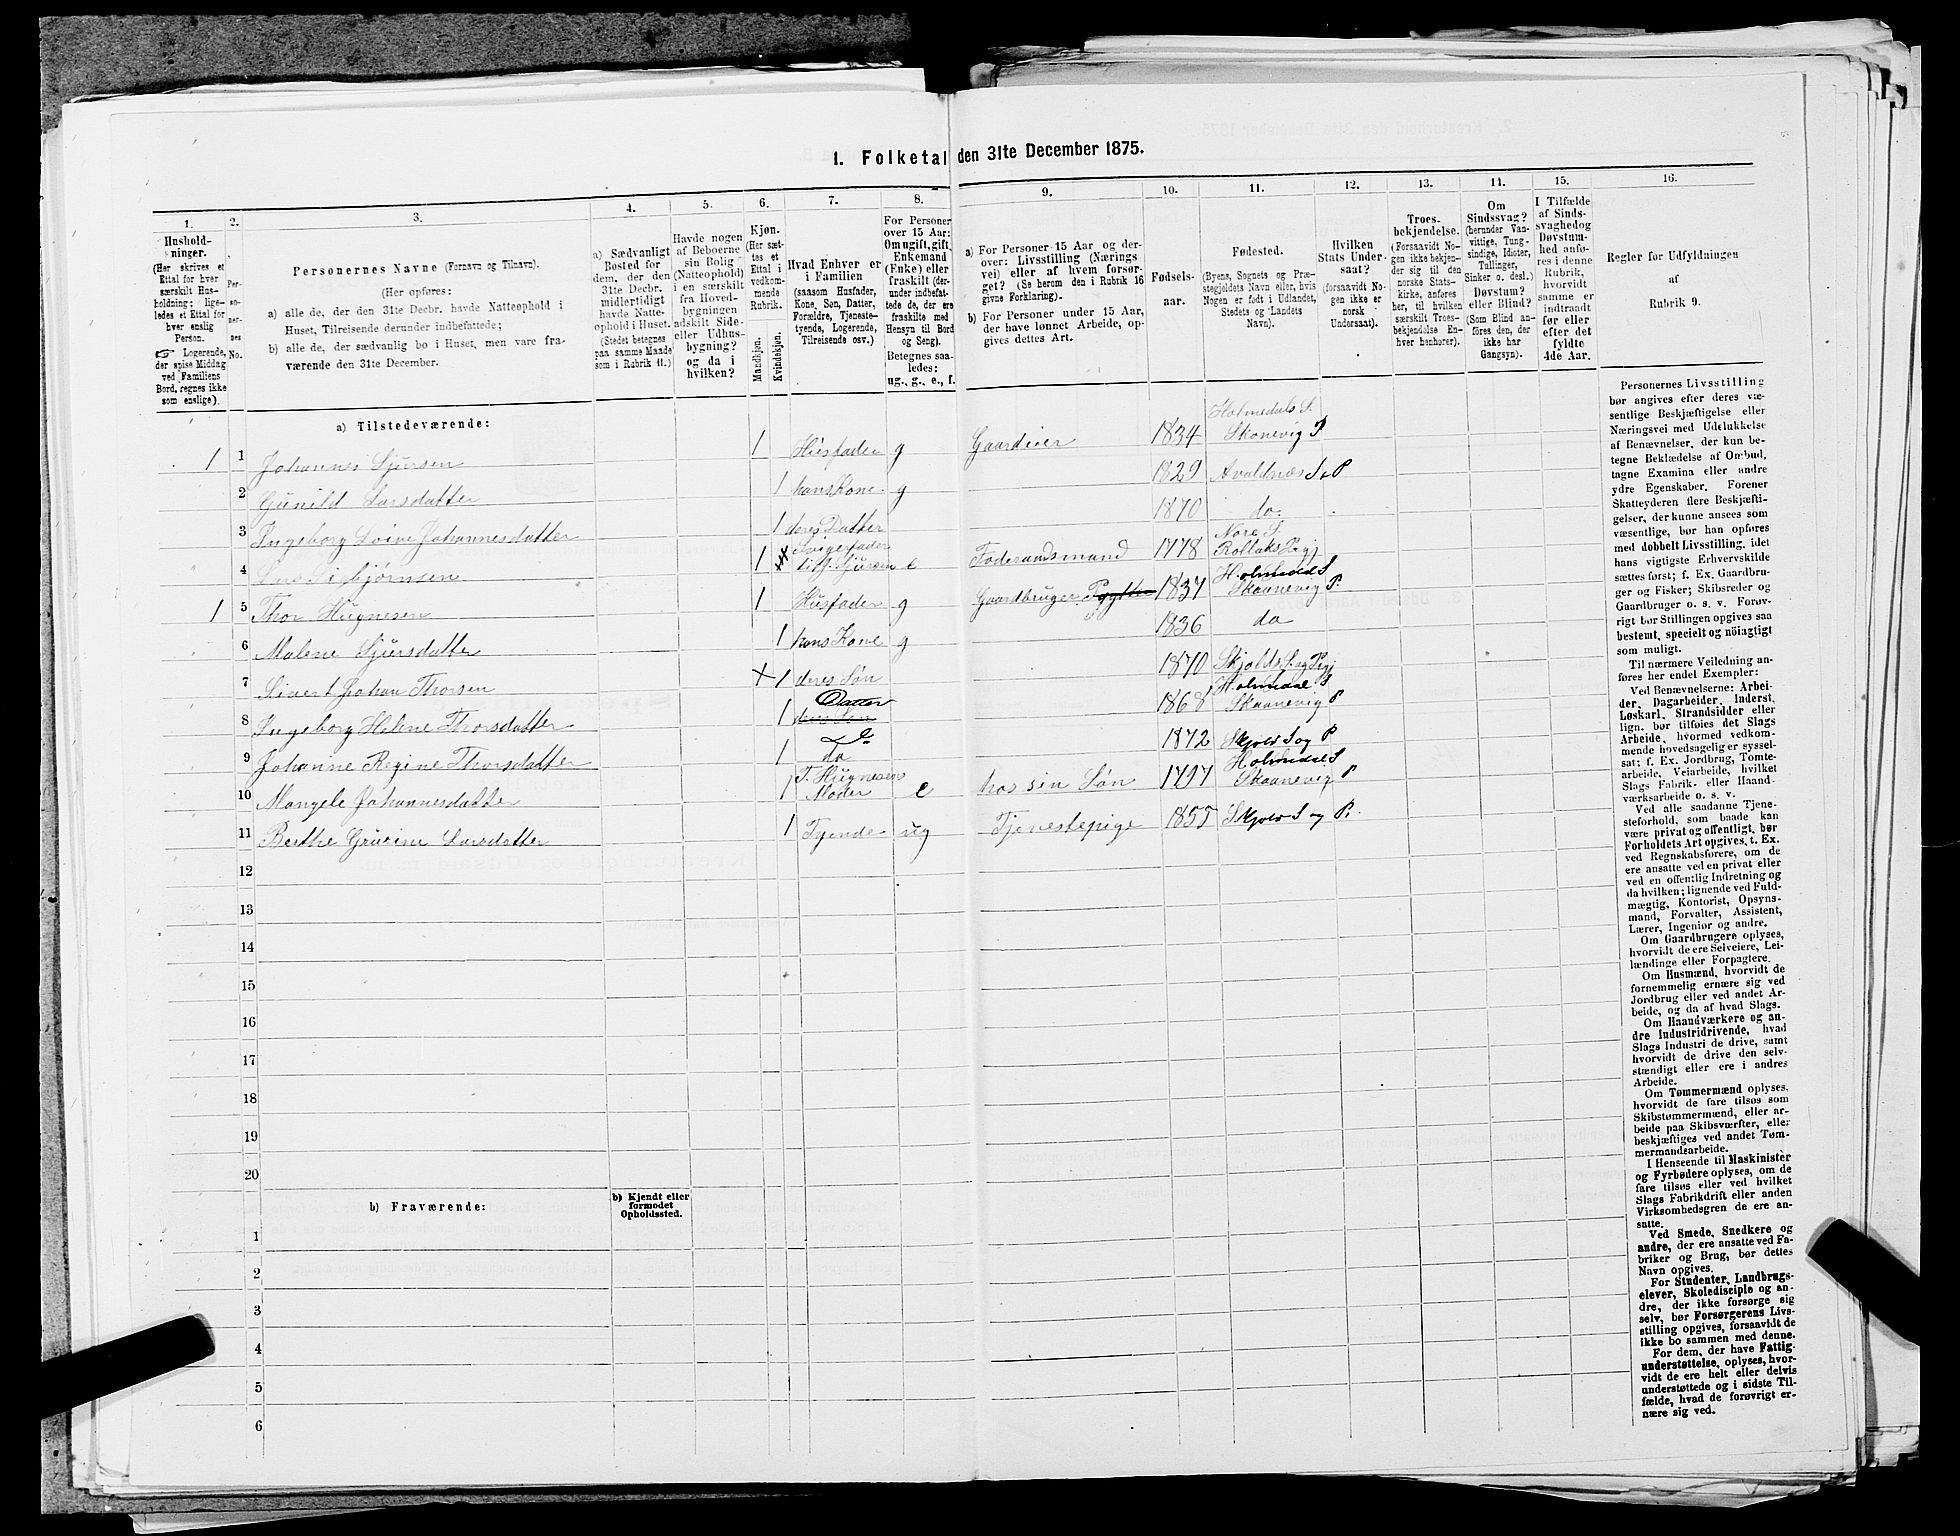 1. Folketal den 31te December 1875.
1.
Hushold-
ninger.
(Her skrives et
Ettal for hver
særskilt Hus-
holdning; lige-
ledes et Ettal for
hver enslig
Person.
☞ Logerende,
der spise Middag
ved Familiens
Bord, regnes ikke
som enslige).
2.
Per-
so-
ner-
nes
No.
3.
Personernes Navne (Fornavn og Tilnavn).
(Her opføres:
a) alle de, der den 31te Decbr. havde Natteophold i
Huset, Tilreisende derunder indbefattede;
b) alle de, der sædvanlig bo i Huset, men vare fra-
værende den 31te December.
4.
a) Sædvanligt
Bosted for
dem, der den
31te Decbr.
midlertidigt
havde Natte-
ophold i Huset.
(Stedet betegnes
paa samme Maade
som i Rubrik 11.)
5.
Havde nogen
af Beboerne
sin Bolig
(Natteophold)
i en særskilt
fra Hoved-
bygningen
adskilt Side-
eller Udhus-
bygning?
og da i
hvilken?
6.
Kjøn.
(Her sæt-
tes et
Ettal i
vedkom-
mende
Rubrik.
Mandkjøn.
Kvindekjøn.
7.
Hvad Enhver er
i Familien
(saasom Husfader,
Kone, Søn, Datter,
Forældre, Tjeneste-
tyende, Logerende,
Tilreisende osv.)
8.
For Personer
over 15 Aar:
Om ugift, gift,
Enkemand
(Enke) eller
fraskilt (der-
under indbefat-
tede de, der ere
fraskilte med
Hensyn til Bord
og Seng).
Betegnes saa-
ledes:
ug., g., e., f.
9.
a) For Personer 15 Aar og der-
over: Livsstilling (Nærings
vei) eller af hvem forsør-
get? (Se herom den i Rubrik 16
givne Forklaring).
b) For Personer under 15 Aar,
der have lønnet Arbeide, op-
gives dettes Art.
10.
Fødsels-
aar.
11.
Fødested.
(Byens, Sognets og Præ-
stegjeldets Navn eller, hvis
Nogen er født i Udlandet,
Stedets og Landets
Navn).
12.
Hvilken
Stats Under-
saat?
(forsaavidt No-
gen ikke er
norsk
Undersaat).
13.
Troes-
bekjendelse.
(Forsaavidt No-
gen ikke bekjen-
der sig til den
norske Stats-
kirke, anføres
her, til hvilken
særskilt Troes-
bekjendelse En-
hver henhører).
14.
Om
Sindssvag?
(herunder Van-
vittige, Tung-
sindige, Idioter,
Tullinger,
Sinker o. desl.)
Døvstum?
eller Blind?
(Som Blind an-
føres den, der
ikke har
Gangsyn).
15.
I Tilfælde
af Sinds-
svaghedog
Døvstum-
hed anfø-
res i denne
Rubrik,
hvorvidt
samme er
indtraadt
før eller
efter det
fyldte
4de Aar.
16.
Regler for Udfyldningen
af
Rubrik 9.
a) Tilstedeværende:
1 1 Johannes Sjursen 1 Husfader g Gaardeier 1834 Holmedals S. Skonevig P
2 Gunild Larsdatter 1 hans Kone g 1829 Avaldnæs S. P
3 Ingeborg Johannesdatter 1 deres Datter 1870 do.
4 Lars 1 Svigerfader til J. Sjursen e Føderaadsmand 1778 Nore S.
1 5 Thor Hugnesen 1 Husfader g Gaardbruger 1837 Holmedal S Skaanevig P.
6 Malene Sjursdatter 1 hans Kone g 1836 do
7 Sivert Johan Thorsen 1 deres Søn 1870 Skjolds S. og Pegj
8 Ingeborg Helene Thorsdatter 1 Datter 1868 Holmedal S Skaanevig P
9 Johanne Regine Thorsdatter 1 do 1872 Skjold S og P
10 Mangele Johannesdatter 1 T. Hugnesens Moder e hos sin Søn 1797 Holmedal S Skaanevig P
11 Berthe Larsdatter 1 Tyende ug Tjenestepige 1855 Skjold S og P.
12
13
14
15
16
17
18
19
20
b) Fraværende:
b) Kjendt eller
formodet
Opholdssted.
1
2
3
4
5
6
Personernes Livsstilling
bør angives efter deres væ-
sentlige Beskjæftigelse eller
Næringsvei med Udelukkelse
af Benævnelser, der kun be-
tegne Beklædelse af Ombud,
tagne Examina eller andre
ydre Egenskaber. Forener
Skatteyderen flere Beskjæfti-
gelser, der kunne ansees som
væsentlige, bør han opføres
med dobbelt Livsstilling, idet
hans vigtigste Erhvervskilde
sættes først; f. Ex. Gaardbru-
ger og Fisker; Skibsreder og
Gaardbruger o. s. v. Forøv-
rigt bør Stillingen opgives saa
bestemt, specielt og nöiagtigt
som muligt.
Til nærmere Veiledning an-
føres her endel Exempler:
Ved Benævnelserne: Arbei-
der, Dagarbeider, Inderst,
Løskarl, Strandsidder eller
lign. bør tilføies det Slags
Arbeide, hvormed vedkom-
mende hovedsagelig er syssel-
sat; f. Ex. Jordbrug, Tomte-
arbeide, Veiarbeide, hvilket
Slags Fabrik- eller Haand-
værksarbeide o. s. v.
Ved alle saadanne Tjene-
steforhold, som baade kan
være privat og offentligt, bør
Forholdets Art opgives, t. Ex.
ved Regnskabsførere, om de
ere ansatte ved en privat eller
ved en offentlig Indretning og
da hvilken; lignende ved Fuld-
mægtig, Kontorist, Opsyns-
mand, Forvalter, Assistent,
Lærer, Ingeniør og andre.
Om Gaardbrugere oplyses,
hvorvidt de ere Selveiere, Lei-
lændinge eller Forpagtere.
Om Husmænd, hvorvidt de
fornemmelig ernære sig ved
Jordbrug eller ved andet Ar-
beide, og da af hvad Slags.
Om Haandværkere og an-
dre Industridrivende, hvad
Slags Industri de drive, samt
hvorvidt de drive den selv-
stændigt eller ere i andres
Arbeide.
Om Tømmermænd oplyses,
hvorvidt de fare tilsøs som
Skibstømmermænd, eller ar-
beide paa Skibsværfter, eller
beskjæftiges ved andet Tøm-
mermandsarbeide.
I Henseende til Maskinister
og Fyrbødere oplyses, om de
fare tilsøs eller ved hvilket
Slags Fabrikdrift eller anden
Virksomhedsgren de ere an-
satte.
Ved Smede, Snedkere og
andre, der ere ansatte ved Fa-
briker og Brug, bør dettes
Navn opgives.
For Studenter, Landbrugs-
elever, Skoledisciple og an-
dre, der ikke forsørge sig
selv, bør Forsørgerens Livs-
stilling opgives, forsaavidt de
ikke bo sammen med denne.
For dem, der have Fattig-
understøttelse, oplyses, hvor-
vidt de ere helt eller delvis
understøttede og i sidste Til-
fælde, hvad de forøvrigt er-
nære sig ved.